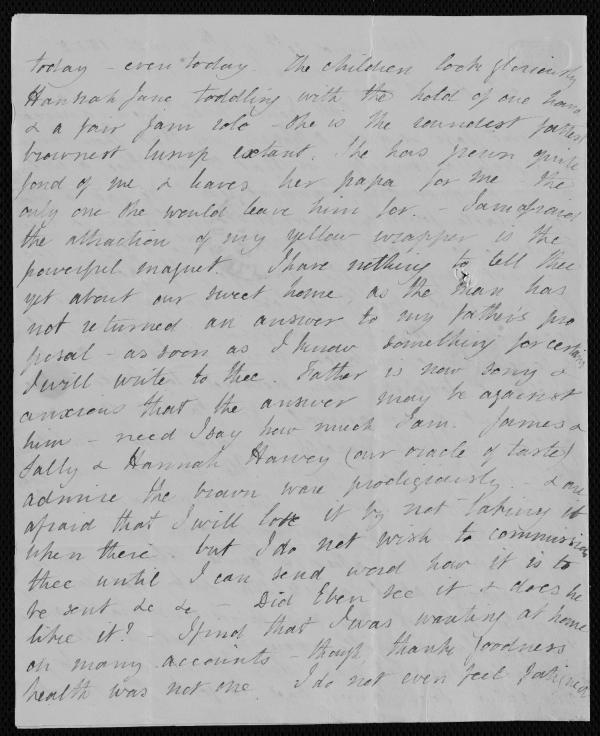 today - even today. The children look gloriously
Hannah Jane toddling with the hold of one hand
& a pair Jam solo - she is the roundest fattest
brownest lump extant. She has grown quite
fond of me & leaves her papa for me the
only one she would leave him for. - I am afraid
the attraction of my yellow wrapper is the
powerful magnet. I have nothing to tell thee
yet about our sweet home, as the man has
not returned an answer to my father's pro
posal - as soon as I know something for certain
I will write to thee. Father is now sorry &
anxious that the answer may be against
him - need I say how much I am. James &
Sally & Hannah Harvey (our oracle of taste)
admire the brown ware prodigiously - & are
afraid that I will lose it by not taking it
when there. but I do not wish to commission
thee until I can send word how it is to
be sent &c &c - Did Eben see it & does he
like it? - I find that I was wanting at home
on many accounts - though thanks Goodness
health was not one. I do not even feel